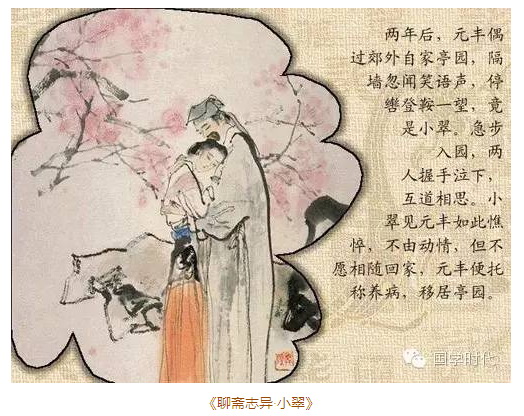 两年后，元丰偶
过郊外自家亭园，隔
墙忽闻笑语声，停
辔登鞍一望，竟
是小翠。急步
入园，两
人握手泣下，
互道相思。小
翠见元丰如此憔
悴，不由动情，但不
愿相随回家，元丰便托
称养病，移居亭园。
国学时代
《聊斋志异·小翠》